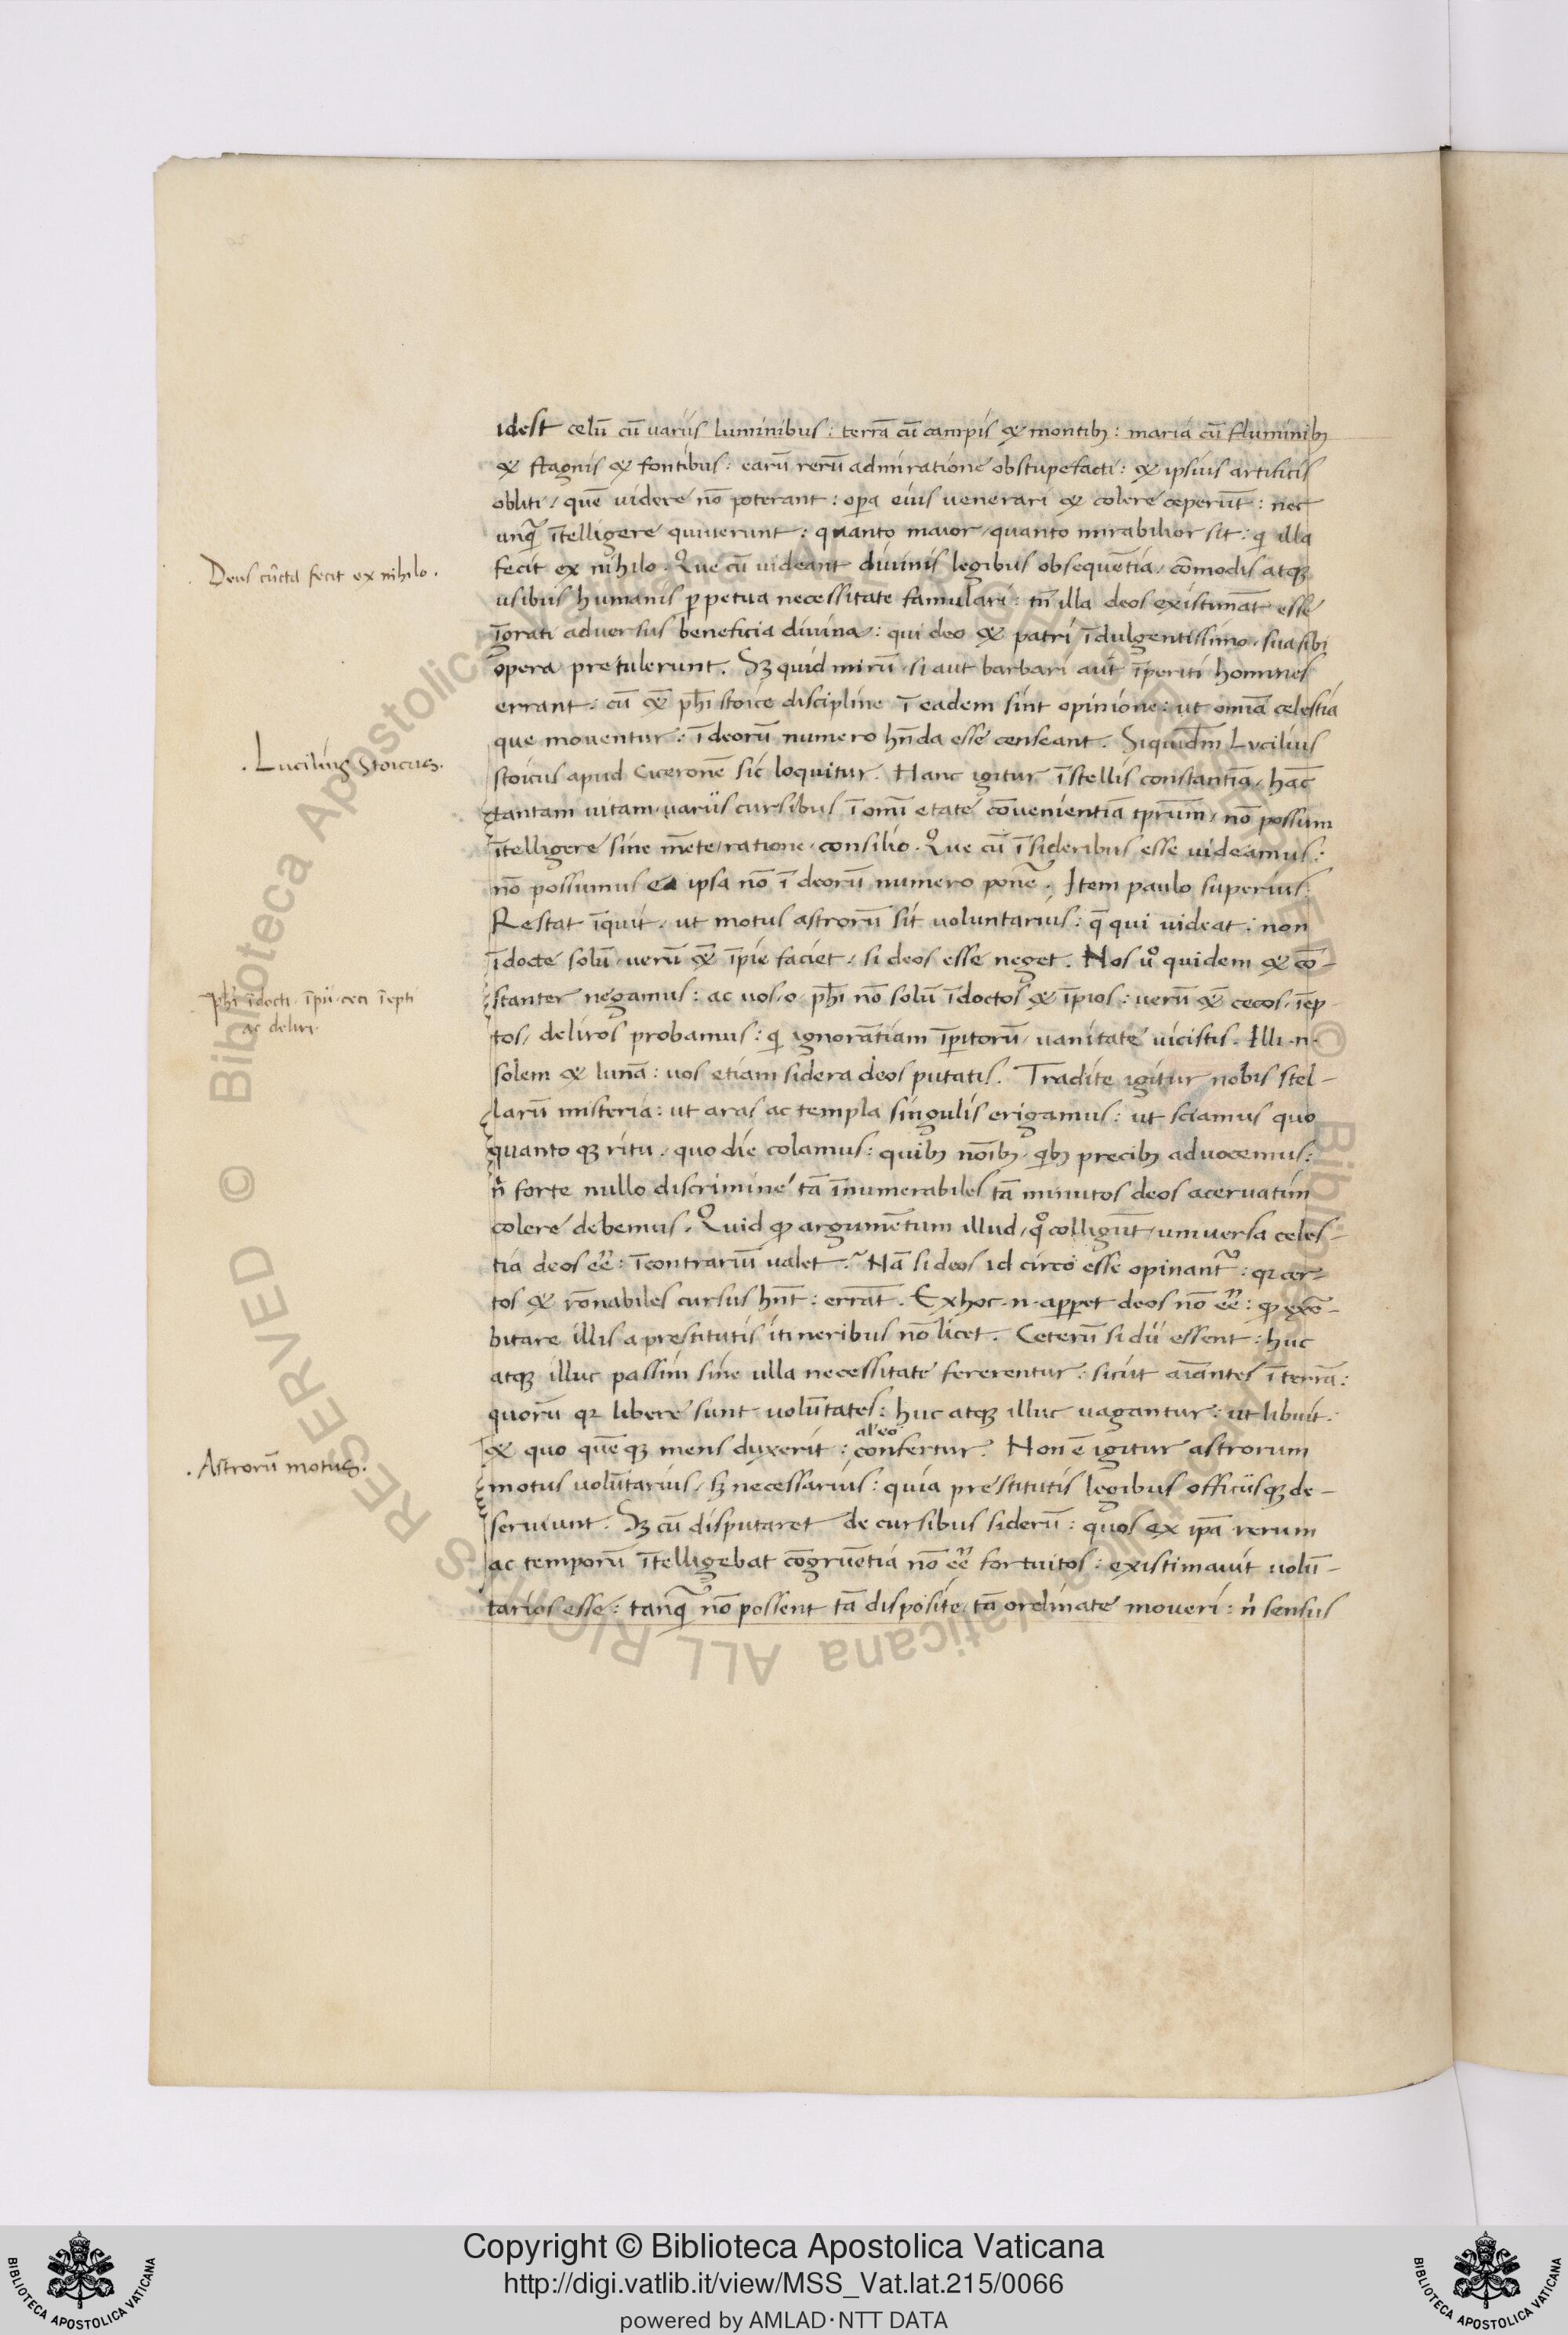 idest celū cū variis luminibus : terrā cū campis & montibꝫ : maria cū fluminibꝫ
& stagnis & fontibus : earū rerū admiratione obstupefacti : & ipsius artificis
obliti / quē videre nō poterant : oꝑa eius venerari & colere ceperūt : nec
unq̄ ītelligere quiverunt : quanto maior / quanto mirabilior sit : qi illa
Deus cūcta fecit ex nihilo .
fecit ex nihilo . Que cū videant divinis legibus obsequētia / cōmodis atqꝫ
usibus humanis ꝑpetua necessitate famulari : tn̄ illa deos existimāt esse
īgrati adversus beneficia divina : qui deo & patri īdulgentissimo / sua sibi
opera pretulerunt . Sꝫ quid mirū / si aut barbari aut īperiti homines
errant : cū &̄ ph̄i stoice discipline ī eadem sint opinione : ut omīa celestia
que moventur : ī deorū numero hn̄da esse censeant . Siquidm̄ Lucilius
. Lucilius Stoicus .
stoicus apud Ciceronē sic loquitur . Hanc igitur ī stellis constantiā / hāc
tantam vitam / variis cursibus ī omī etate cōvenientiā tp̄rum̄ / nō possum
ītelligere sine mēte / ratione / consilio . Que cū ī sideribus esse videamus :
nō possumus ea ipsa nō ī deorū numero ponē . Item paulo superius :
Restat īquit / ut motus astrorū sit voluntarius : q̄ qui videat : non
īdocte solū / verū &̄ īpie faciet / si deos esse neget . Nos vͦ quidem & cō-
ph̄i īdocti . īpii . ceci īepti
ac deliri .
stanter negamus : ac vos / o / ph̄i nō solū īdoctos & īpios : verū &̄ cecos / īep
tos / deliros probamus : qi ignorātiam īꝑitorū / vanitate vicistis . Illi .n.
solem & lunā : vos etiam sidera deos putatis . Tradite igitur nobis stel-
larū misteria : ut aras ac templa singulis erigamus : ut sciamus quo
quanto qꝫ ritu / quo die colamus : quibꝫ noībꝫ / qibꝫ precibꝫ advocemus :
ni forte nullo discrimine tā īnumerabiles tā minutos deos acervatim
colere debemus . Quid ꝙ argumētum illud / qͦ colligūt / universa celes-
tia deos eē : ī contrariū valet . Nā si deos id circo esse opinant᷑ : qꝛ cer-
tos & rōnabiles cursus hn̄t : errāt . Ex hoc .n. apꝑet deos nō eē : ꝙ exō-
bitare illis a prestitutis itineribus nō licet . Ceterū si dii essent : huc
atqꝫ illuc passim sine ulla necessitate fererentur : sicut aīantes ī terrā :
quorū qꝛ libere sunt volūtates : huc atqꝫ illuc vagantur : ut libuit :
al' eo
& quo quēqꝫ mens duxerit : confertur . Non ē igitur astrorum
. Astrorū motus .
motus volūtarius / sꝫ necessarius : quia prestitutis legibus officiisqꝫ de-
serviunt . Sꝫ cū disputaret de cursibus siderū : quos ex ip̄a rerum
ac temporū ītelligebat cōgruētia nō eē fortuitos : existimavit volū-
tarios esse : tanq̄ nō possent tā disposite / tā ordinate moveri : ni sensus
© Biblioteca Apostolica Vaticana ALL RIGHTS RESERVED
Copyright © Biblioteca Apostolica Vaticana
http://digi.vatlib.it/view/MSS_Vat.lat.215/0066
powered by AMLAD·NTT DATA
BIBLIOTECA APOSTOLICA VATICANA
BIBLIOTECA APOSTOLICA VATICANA